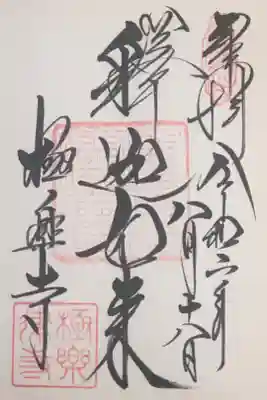 奉拝 令和六年
八月十八日
釋迦如来
極楽寺